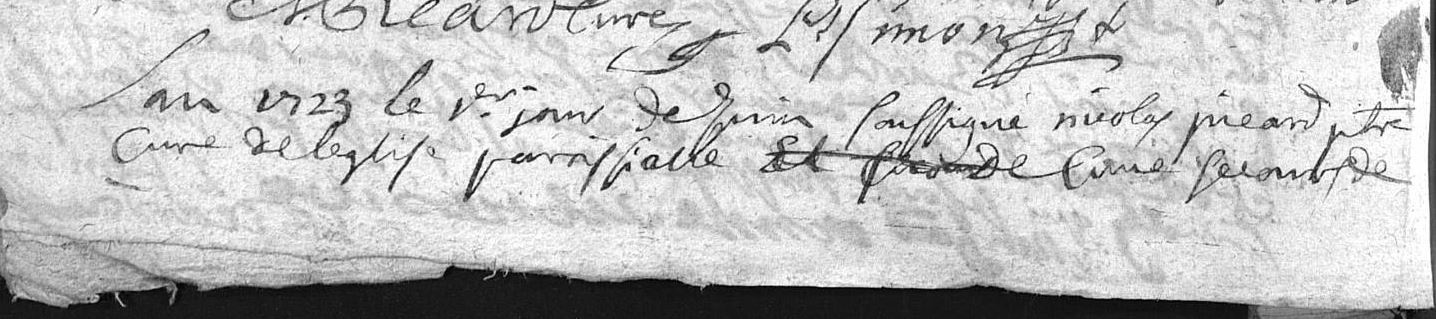 Picard Cure L Simon
Lan 1723 le 1er jour de Juin soussigné nicolas picard ptre
Curé de leglise parroissialle Et de Cure secours de